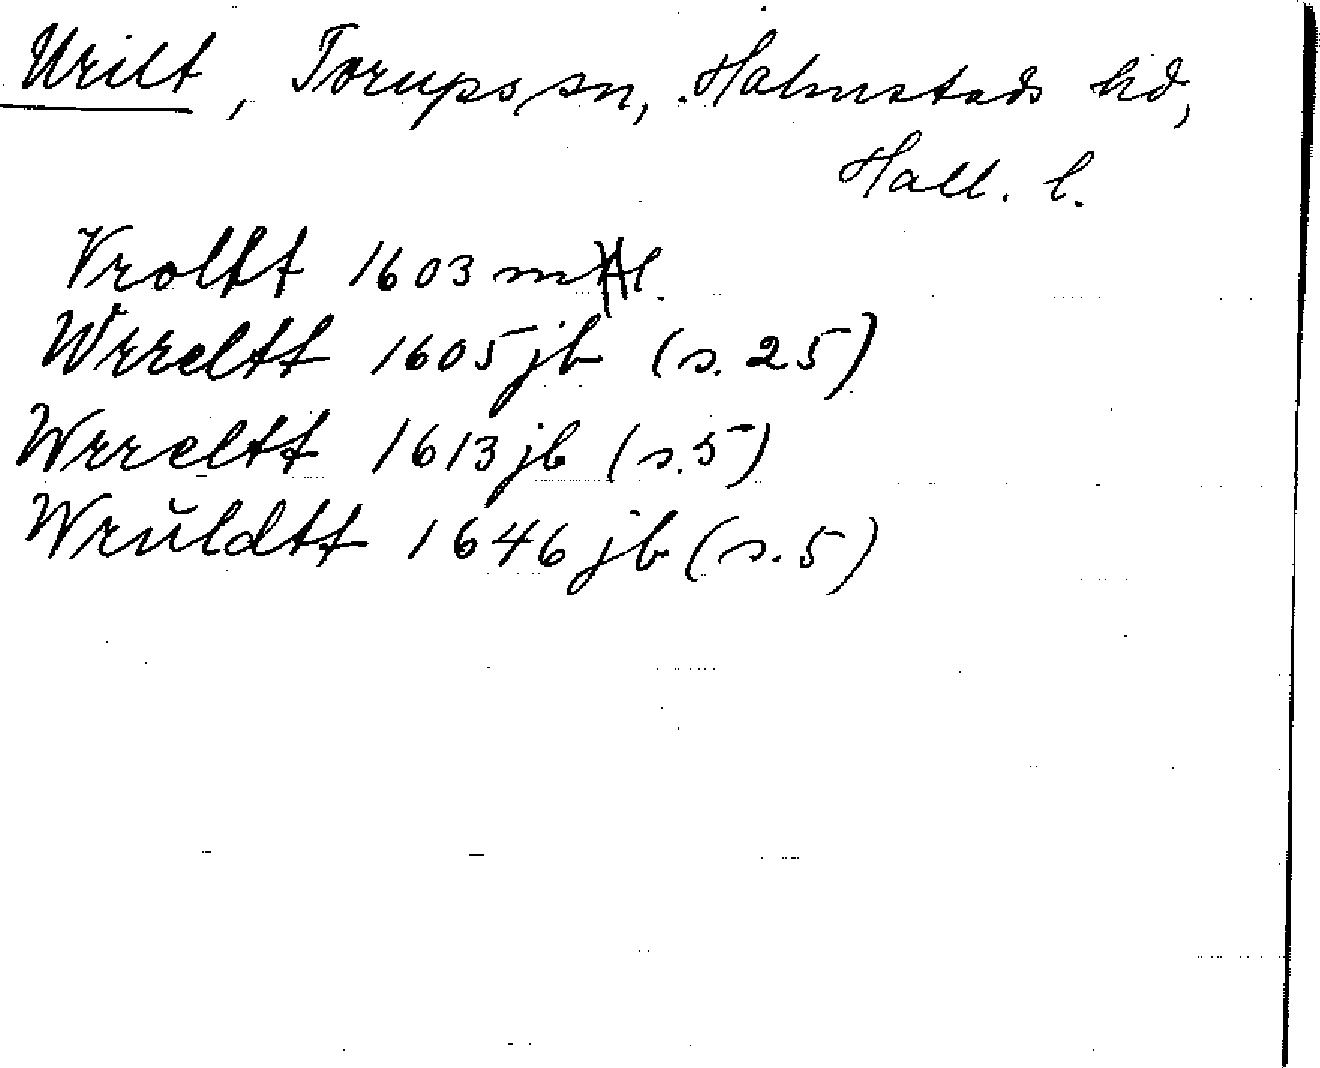 Urilt, Torups sn, Halmstads hd,
Hall. l.
Vroltt 1603 mtl.
Wrreltt 1605 jb (s. 25)
Wrreltt 1613 jb (s. 5)
Wrŭldtt 1646 jb (s. 5)